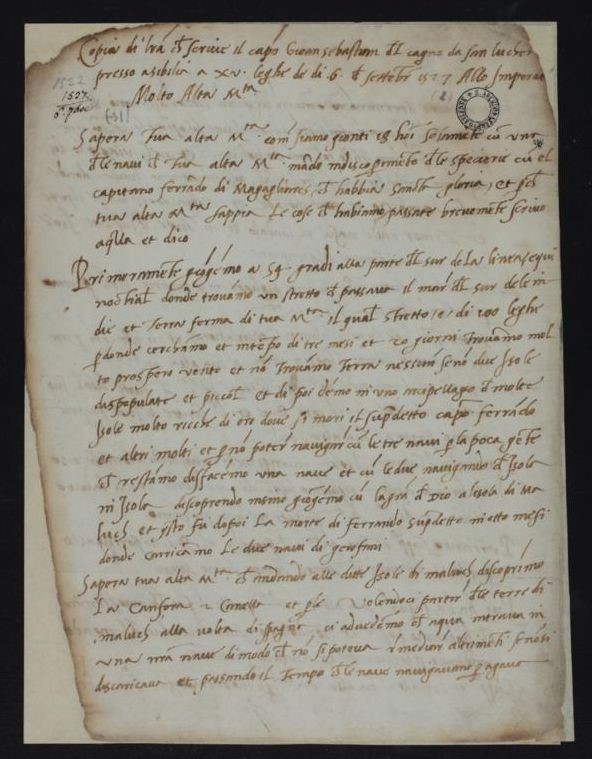 Copia di lrã ch' scrive il capo Gioan sebastian del cagno da san lucher
presso a sibilia a XV. leghe de di 6. di settebr 1527 Allo Imperat
1522
1527
Molto Alta Mta
Sapera Tua alta Mta. com siamo gionti 18 homi solamete cũ una
d'le navi d' Tua alta Mta. mãdo in discoprimeto d'le speciarie cũ el
capitano ferrãdo di Magaglianes, ch' habbia Gloria, et
tua alta Mta sappia Le cose ch' habiamo passate brevemete scrivo
aq'lla et dico
Primeramete giõgemo a 54 gradi alla parte d'l sur de La linea equi
noctial donde trovamo un stretto ch' passava il mar d'l sur de le in
die et Terra ferma di tua Mta il qual stretto e di 100 leghe
p donde cerchamo et in tẽpo di tre mesi et 20 giorni Trovamo mol
to prospero vento et nõ Trovamo Terra nessuna senõ due Isole
dispopulate et piccole et di poi demo in uno arcipellago d' molte
Isole molto ricche di oro dove si mori il supdetto capo ferrãdo
et altri molti et p nõ poter navigar cũ le tre navi p la poca gẽte
ch' restamo disfacemo una nave et cũ le due navigando d' Isola
in Isola discoprendo giõgemo cũ la gra d' Dio a Isola di Ma
luch et q'sto fu dopoi La morte di ferrando supdetto in otto mesi
donde carricamo Le due navi di garofani
Sapera tua alta Mta ch' andando alle ditte Isole di maluch discoprimo
La Canfora Canella et perle Volendoci partir d'le terre di
maluch alla volta di spagna ci advedemo ch' aqua intrava in
una nra nave di modo ch' no si poteva remediar altrimeti se nõ si
discaricava et passando il Tempo ch' le nave navigavano p agaua